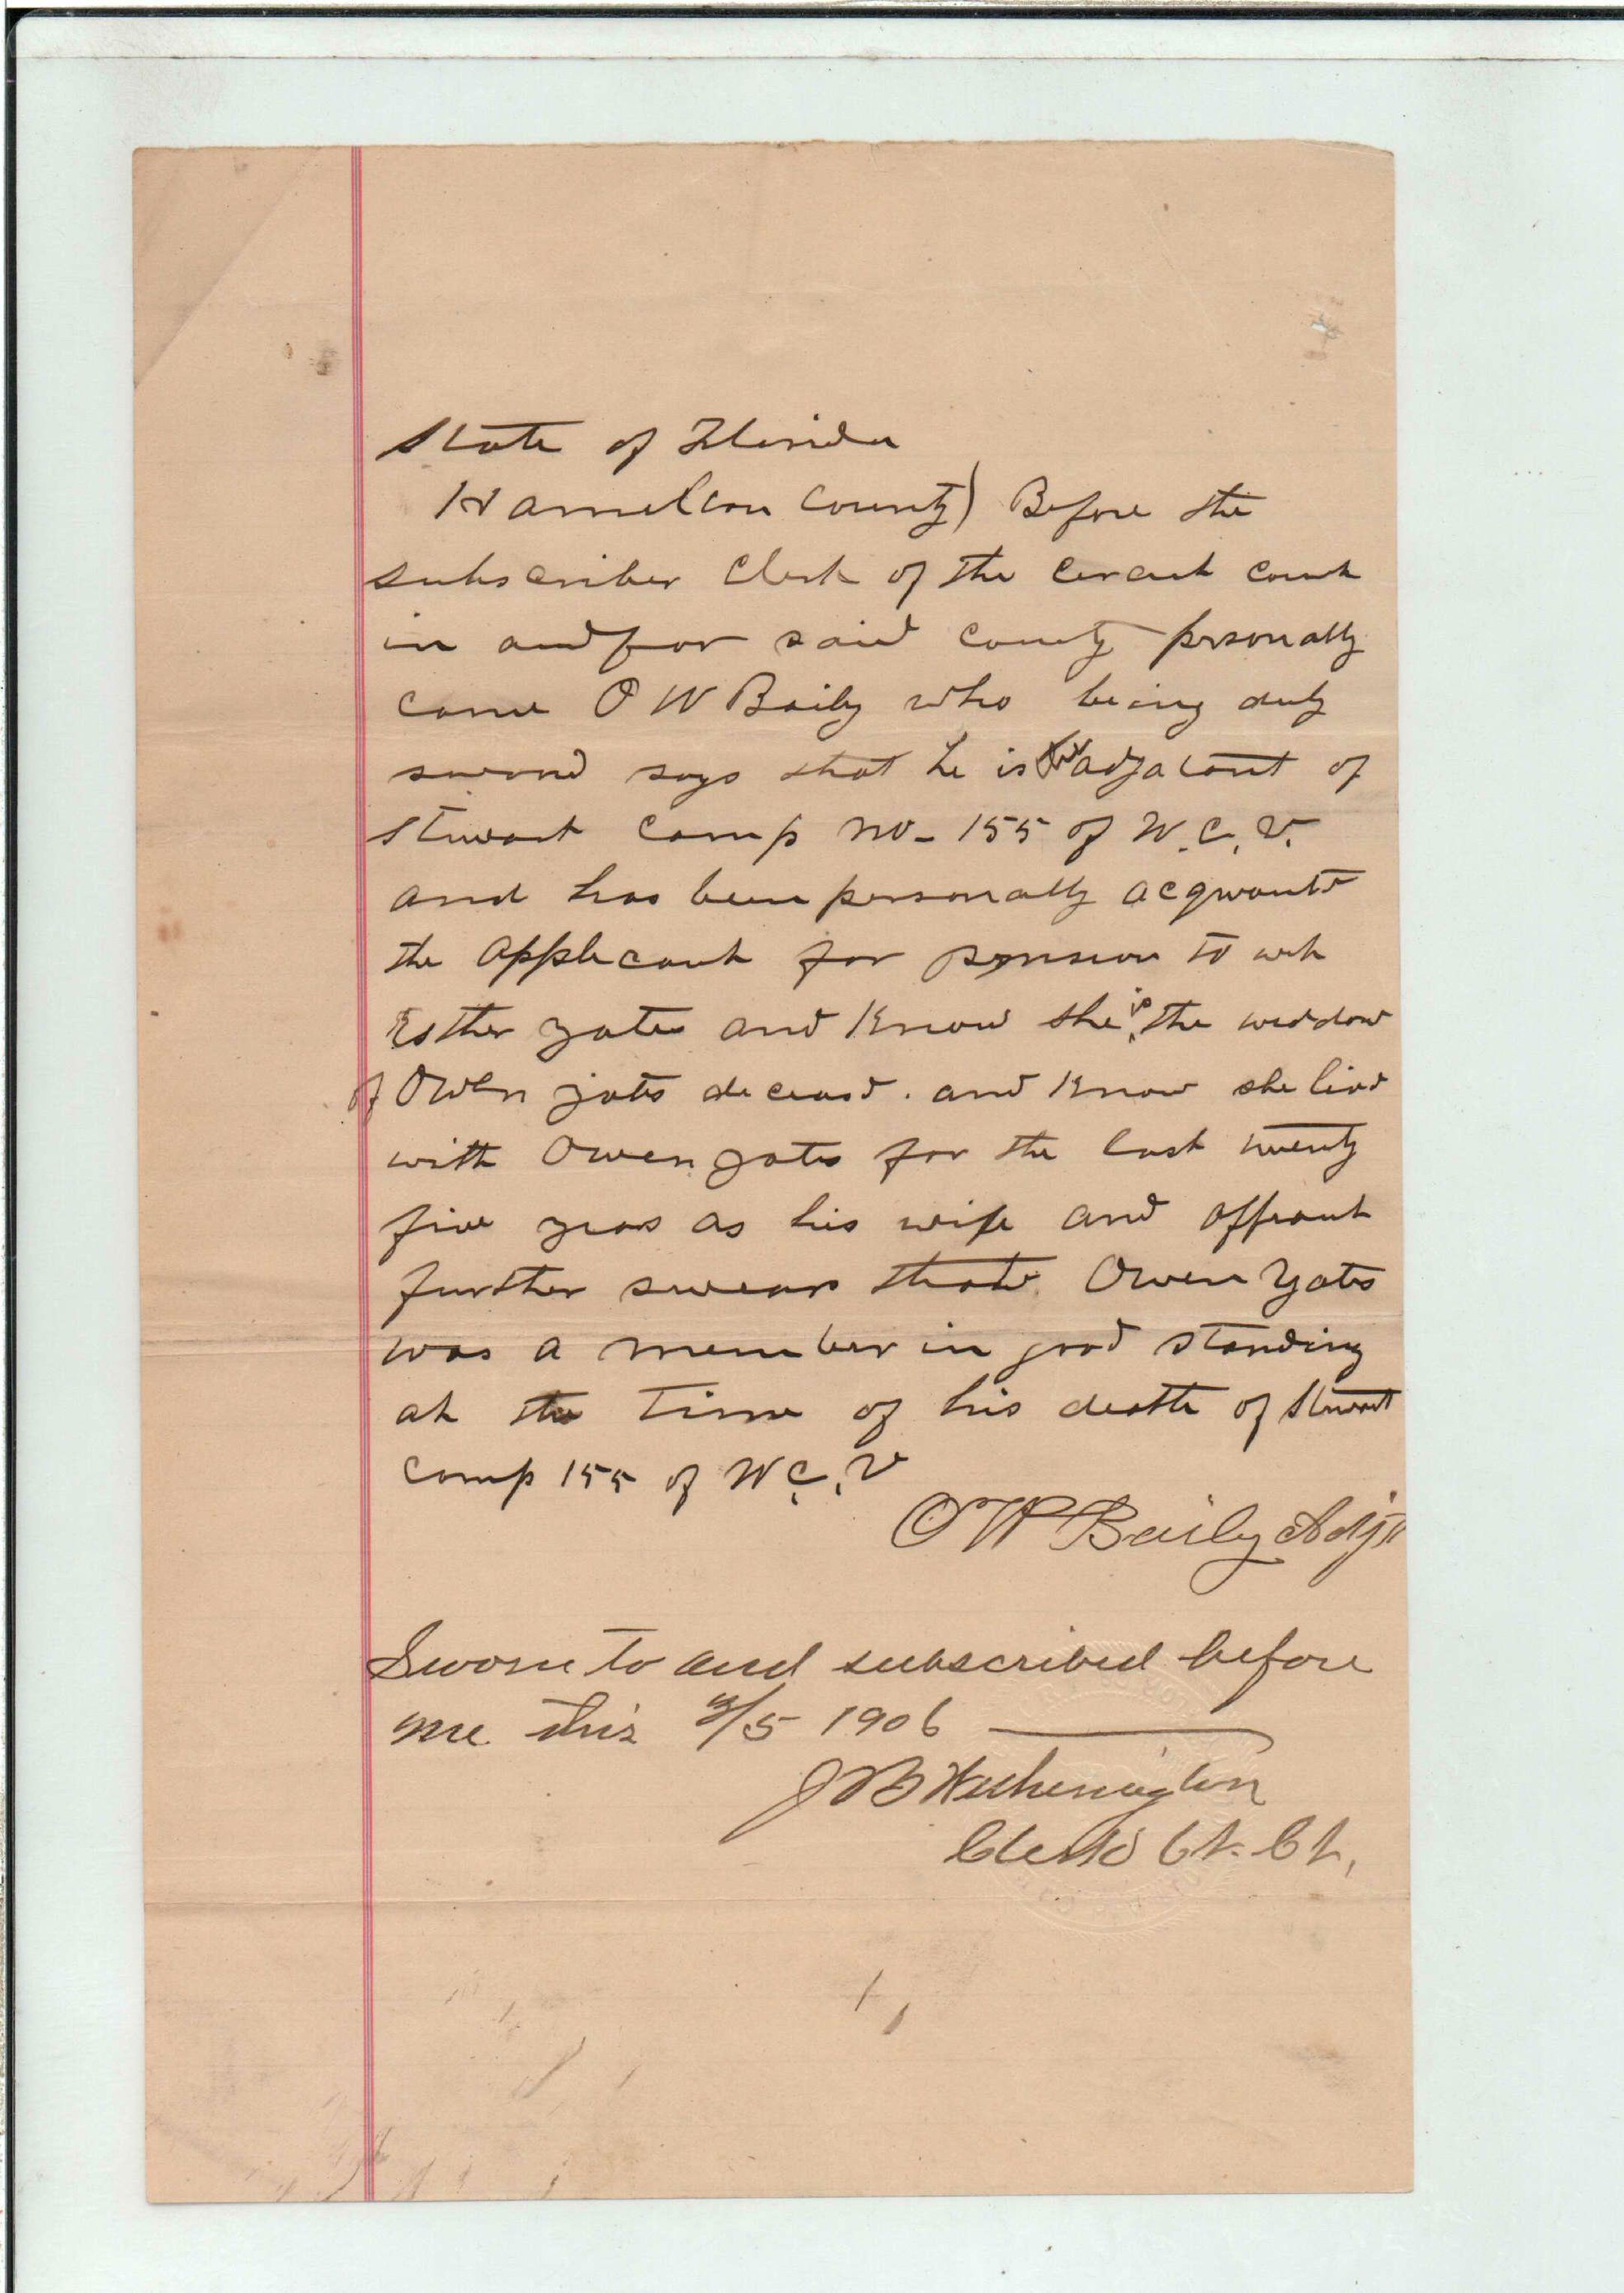 State of Florida
Hamelton County) Before the
subscriber Clerk of the Cercut court
in and for said County prsonally
came O W Baily who being duly
sworn says that he is the adjatant of
Stuwart Camp No - 155 of W. C. V.
and has been personally acqwantd
the applecant for pension to wit
Esther Yates and Know she is the weddow
of Owen Yates deceasd. and Know she livd
with Owen Yates for the last twenty
five years as his wife and affeant
further swears that Owen Yates
was a member in good standing
at the time of his death of Stuwart
Camp 155 of W C. V
O W Baily Adjt
Sworn to and subscribed before
me this 3/5 1906
J B Hetherington
Clerk Ct. Ct.